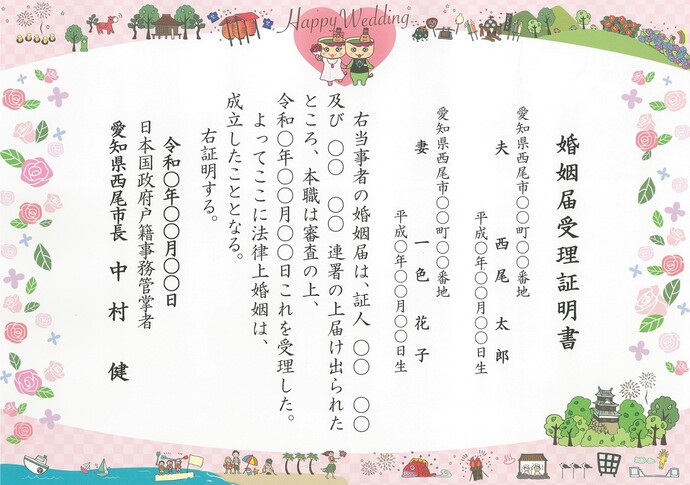 Happy Wedding
婚姻届受理証明書
愛知県西尾市〇〇町〇〇番地
夫 西尾 太郎
平成〇年〇〇月〇〇日生
愛知県西尾市〇〇町〇〇番地
妻 一色 花子
平成〇年〇〇月〇〇日生
右当事者の婚姻届は、証人 〇〇 〇〇
及び 〇〇 〇〇 連署の上届け出られた
ところ、本職は審査の上、
令和〇年〇〇月〇〇日これを受理した。
よってここに法律上婚姻は、
成立したこととなる。
右証明する。
令和〇年〇〇月〇〇日
日本国政府戸籍事務管掌者
愛知県西尾市長 中村 健